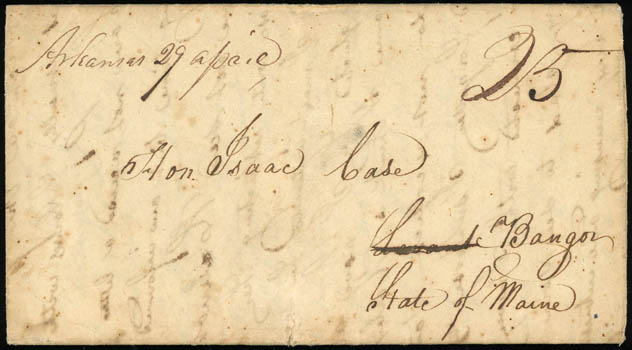 Arkansas 29 april
25
Hon Isaac Case
Bangor
State of Maine